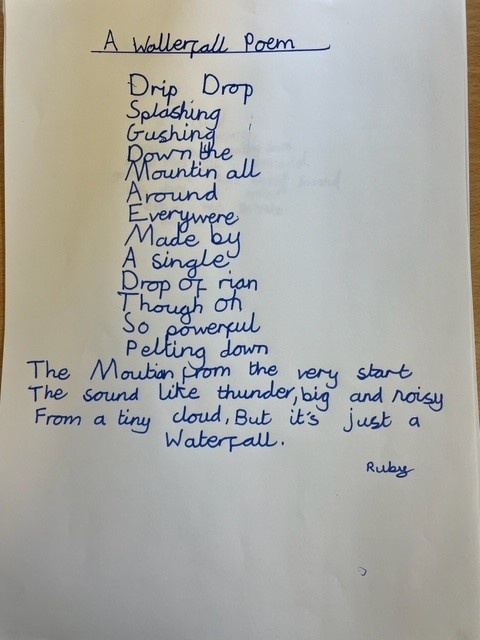 A Wallerfall Poem
Drip Drop
Splashing
Gushing
Down the
Mountin all
Around
Everywere
Made by
A single
Drop of rian
Though oh
So powerful
Pelting down
The Moutian from the very start
The sound like thunder, big and noisy
From a tiny cloud, But it's just a
Waterfall.
Ruby